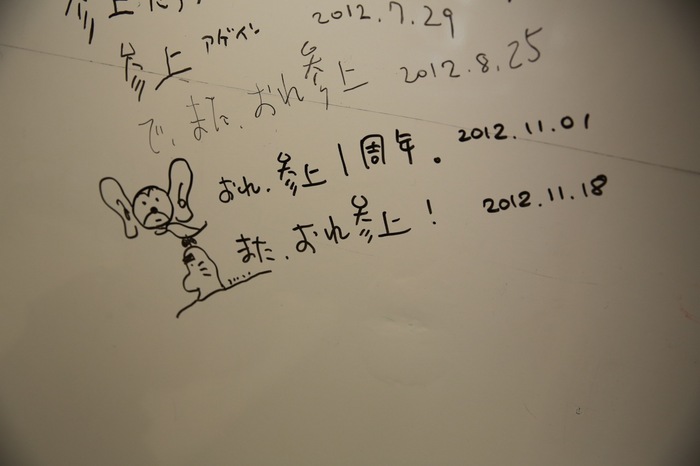 参上 アゲイン 2012.7.29
で、また、おれ参上 2012.8.25
おれ、参上1周年。 2012.11.01
また、おれ参上! 2012.11.18